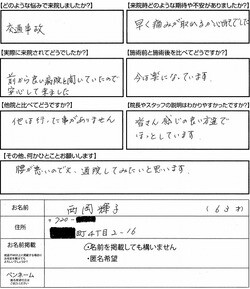 【どのような悩みで来院しましたか?】
【来院時どのような期待や不安がありましたか?】
交通事故
早く痛みが取れるか心配でした
【実際に来院されてどうでしたか?】
【施術前と施術後を比べてどうですか?】
前から良い病院と聞いていたので
安心して来ました
今は楽になっています。
【他院と比べてどうですか?】
【院長やスタッフの説明はわかりやすかったですか?】
他は行った事がありません
皆さん感じの良い方達で
ほっとしています。
【その他、何かひとことお願いします】
腰が悪いので又、通院してみたいと思います。
お名前
両岡輝子
(63才)
ご住所
〒720-
町4丁2-16
お名前掲載
名前を掲載しても構いません
・匿名希望
ペンネーム